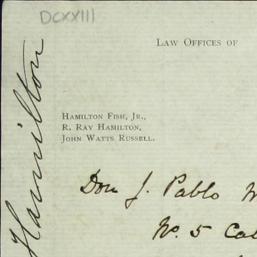 DCXXIII
LAW OFFICES OF
HAMILTON FISH, JR.,
R. RAY HAMILTON,
JOHN WATTS RUSSELL.
Hamilton
Don J. Pablo
No. 5 Cal